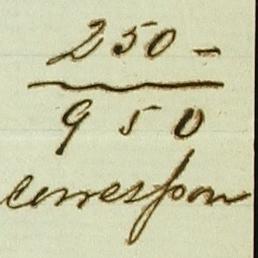 250 -
950
correspon